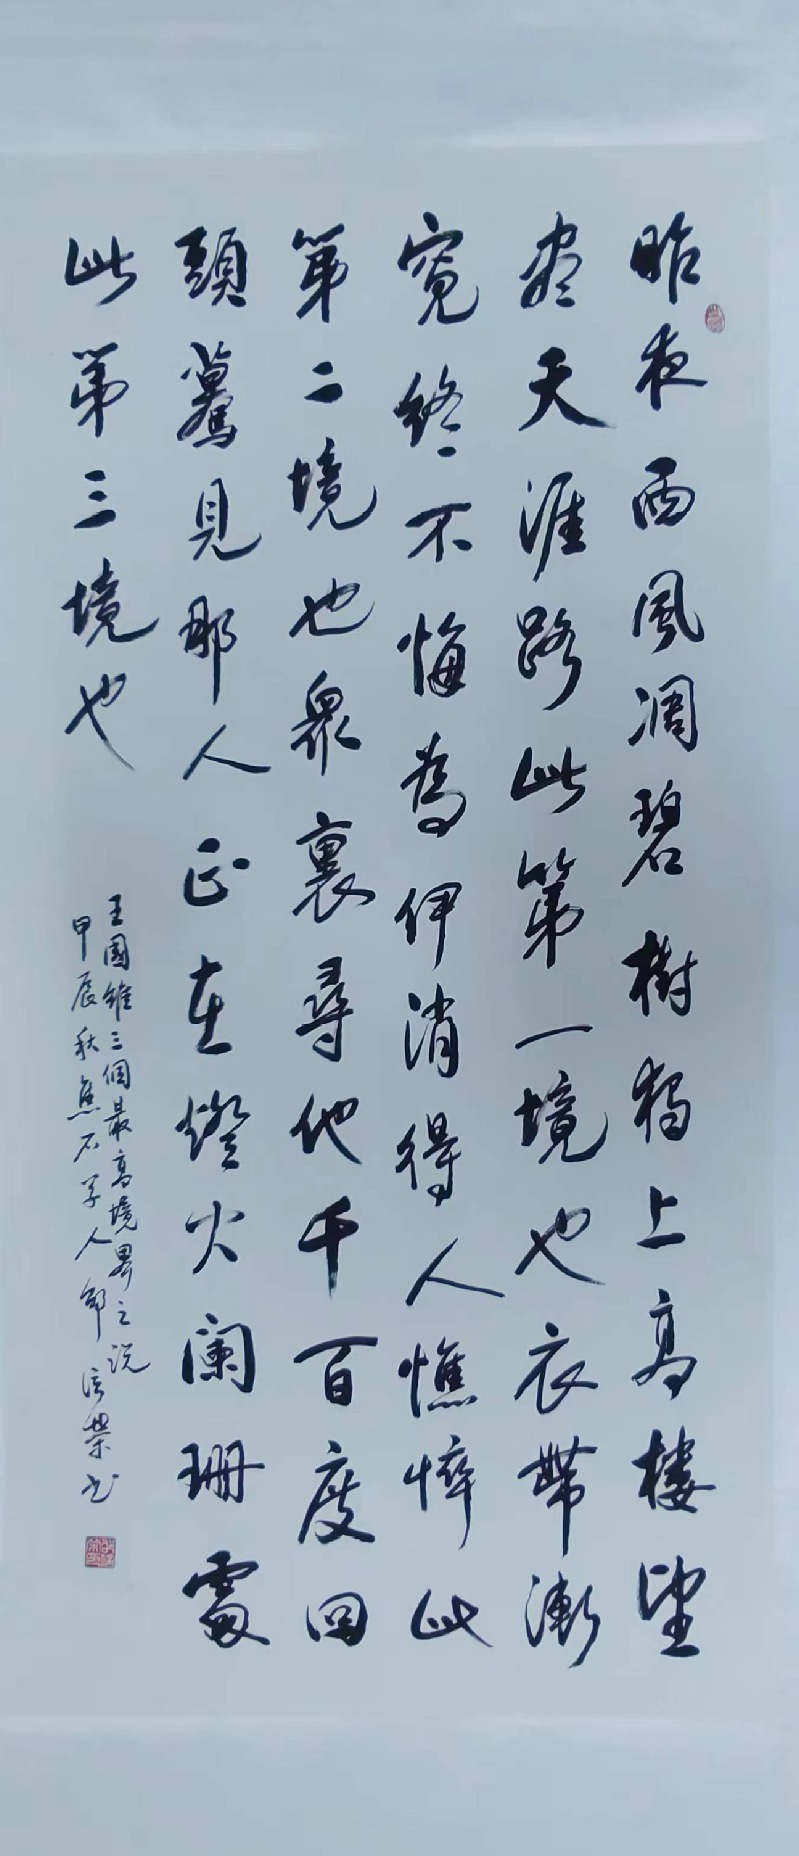 昨夜西風凋碧樹獨上高樓望
盡天涯路此第一境也衣帶漸
寬終不悔為伊消得人憔悴此
第二境也衆裏尋他千百度回
頭驀見那人正在燈火闌珊處
此第三境也
王國維三個最高境界之說
甲辰秋焦石学人邹信榮书